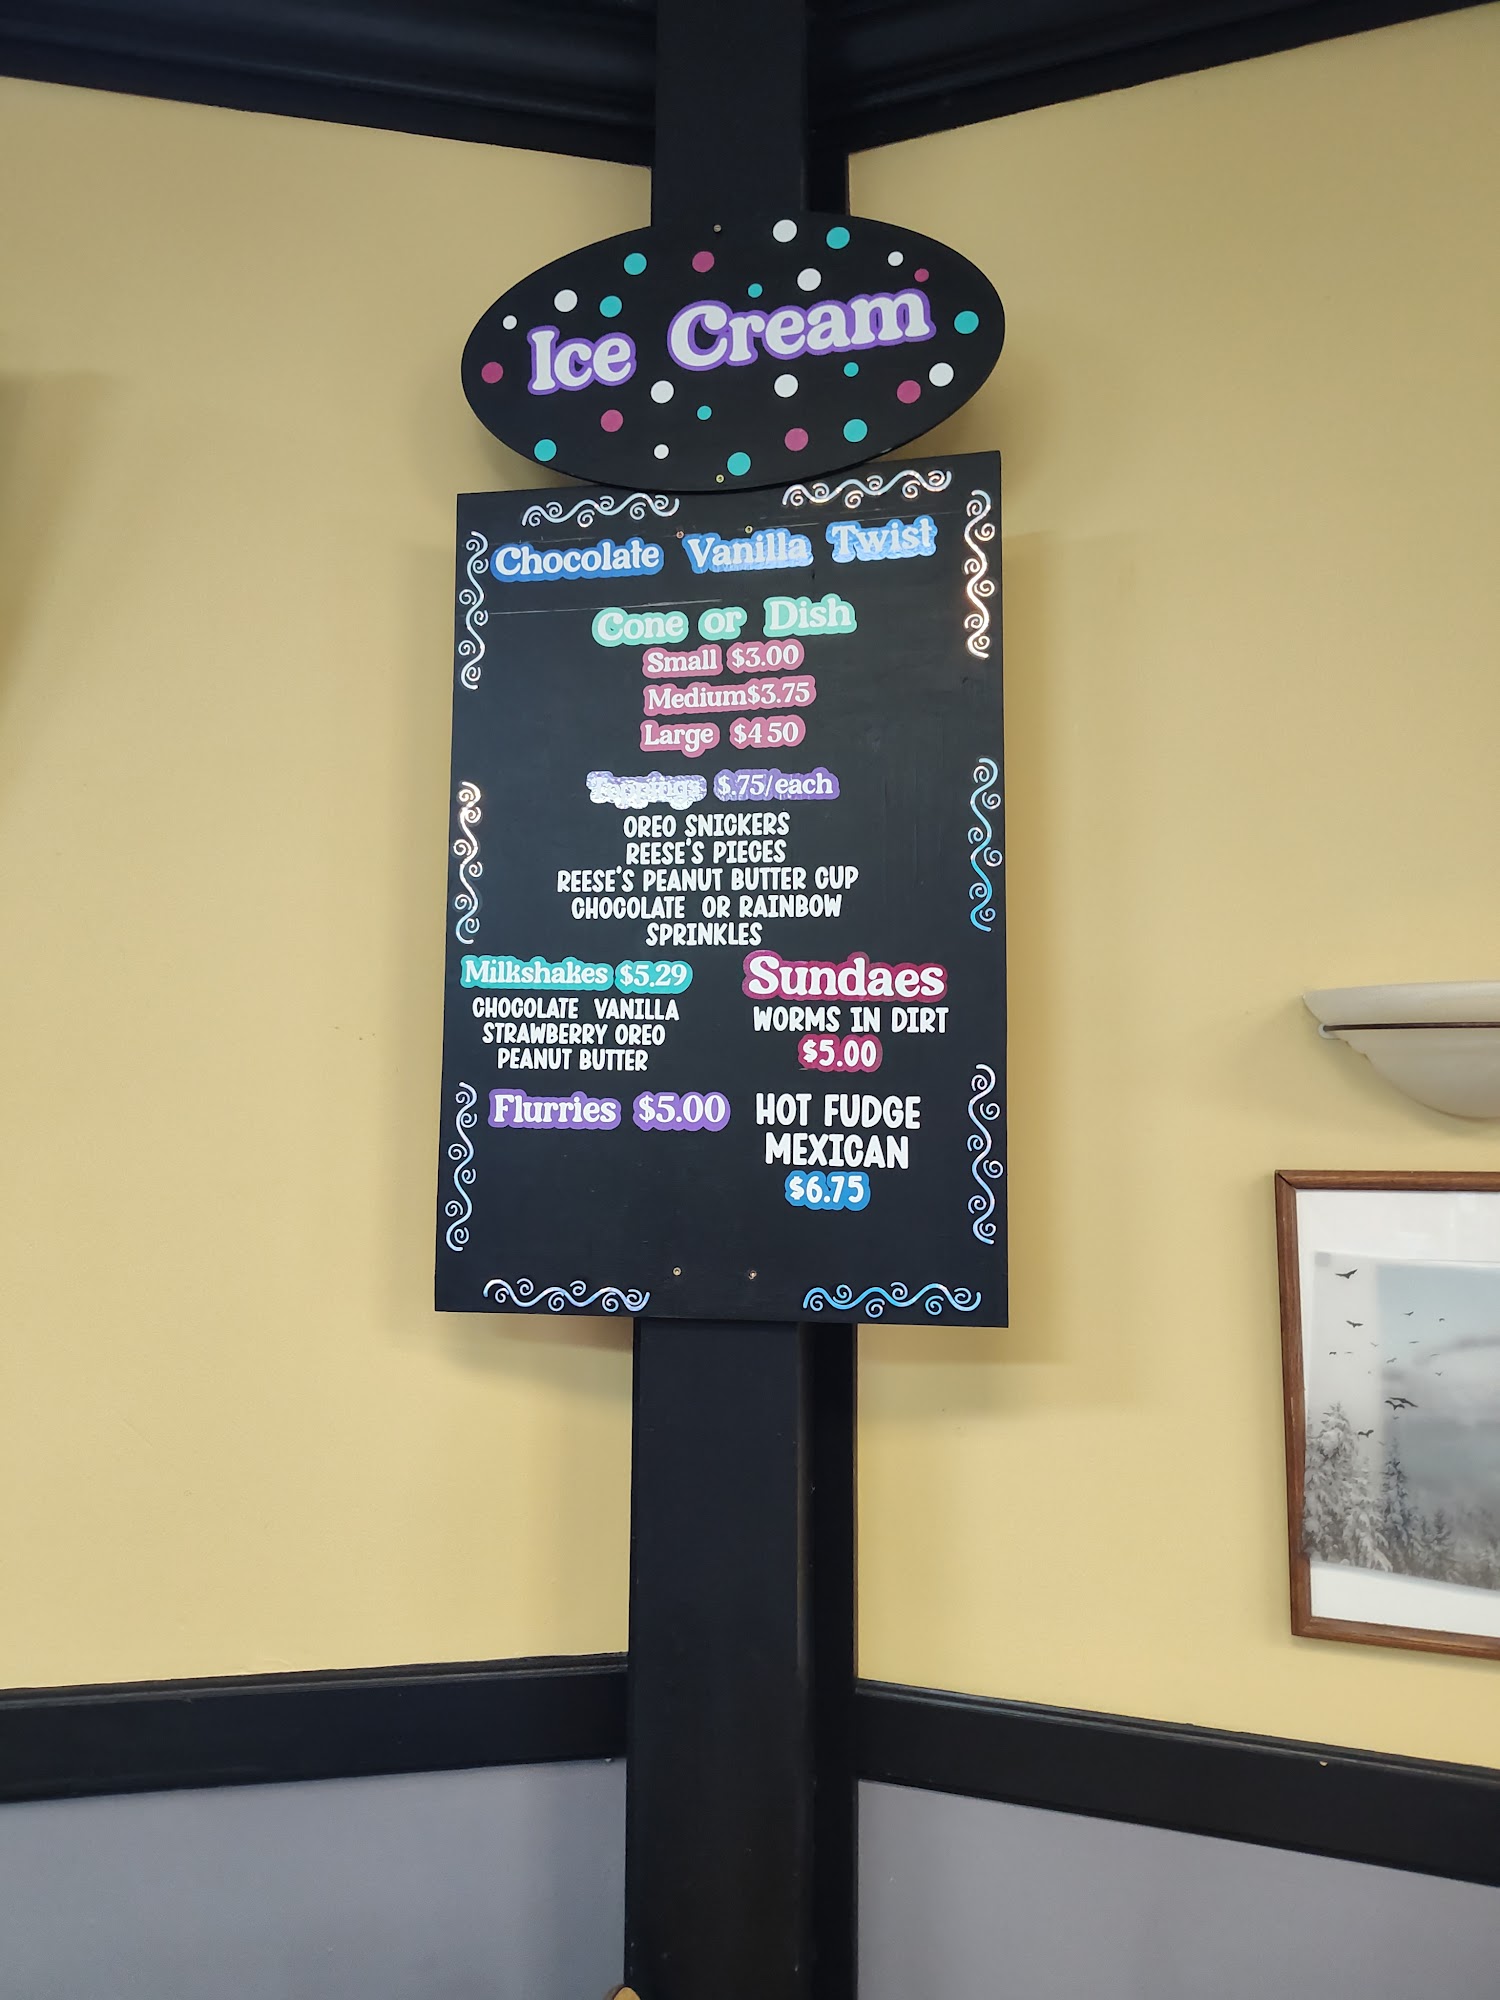 Ice Cream
Chocolate Vanilla Twist
Cone or Dish
Small $3.00
Medium $3.75
Large $4 50
Toppings $.75/each
OREO SNICKERS
REESE'S PIECES
REESE'S PEANUT BUTTER CUP
CHOCOLATE OR RAINBOW
SPRINKLES
Milkshakes $5.29
CHOCOLATE VANILLA
STRAWBERRY OREO
PEANUT BUTTER
Flurries $5.00
Sundaes
WORMS IN DIRT
$5.00
HOT FUDGE
MEXICAN
$6.75